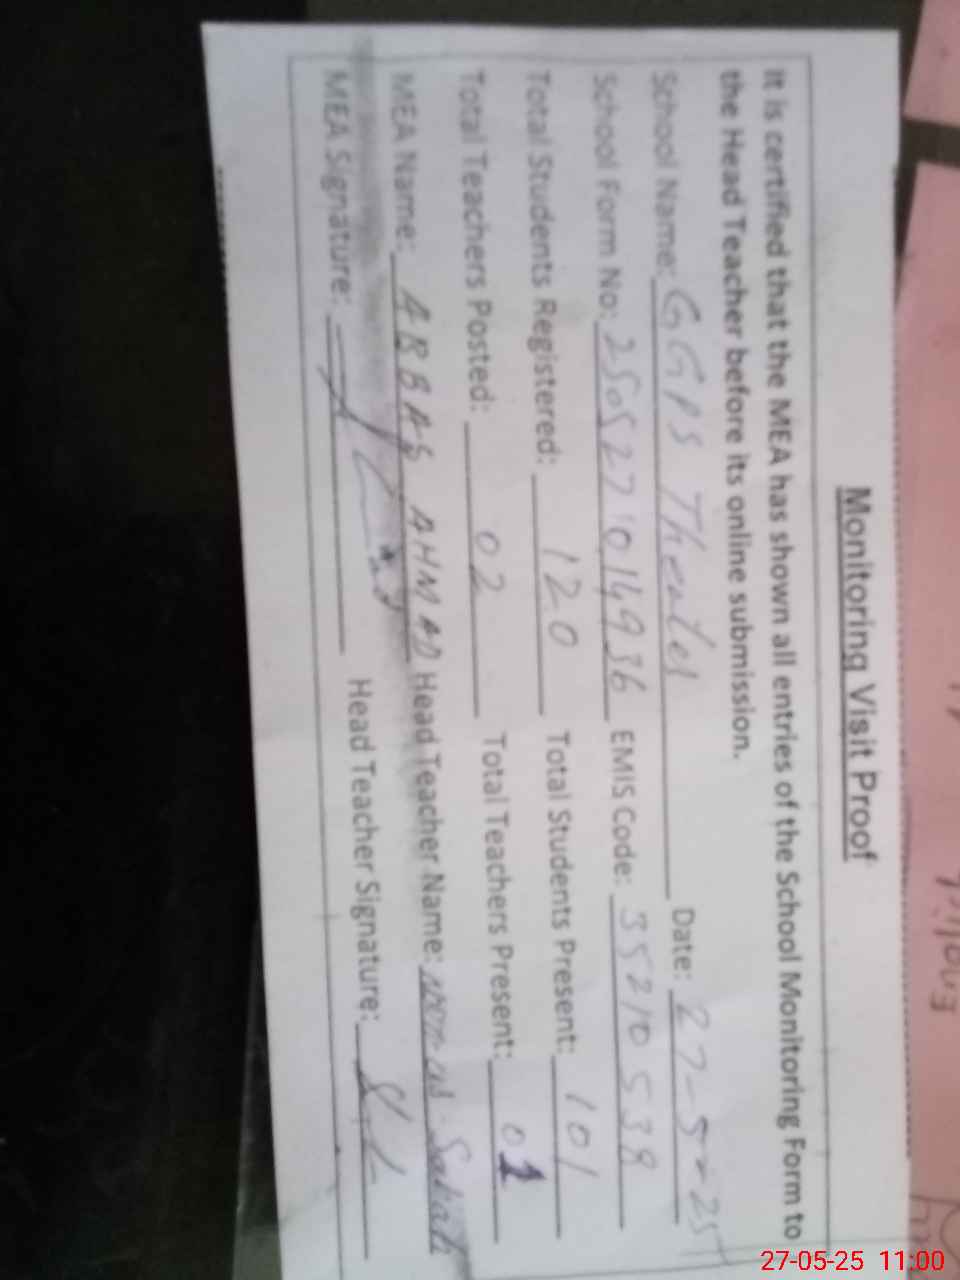 Monitoring Visit Proof
It is certified that the MEA has shown all entries of the School Monitoring Form to
the Head Teacher before its online submission.
School Name: GGPS Date: 27-5-25
School Form No: 2505271014936 EMIS Code: 35210538
Total Students Registered: 120 Total Students Present: 101
Total Teachers Posted: 02 Total Teachers Present: 01
MEA Name: ABBAS AHMAD Head Teacher Name:
MEA Signature: Head Teacher Signature:
27-05-25 11:00